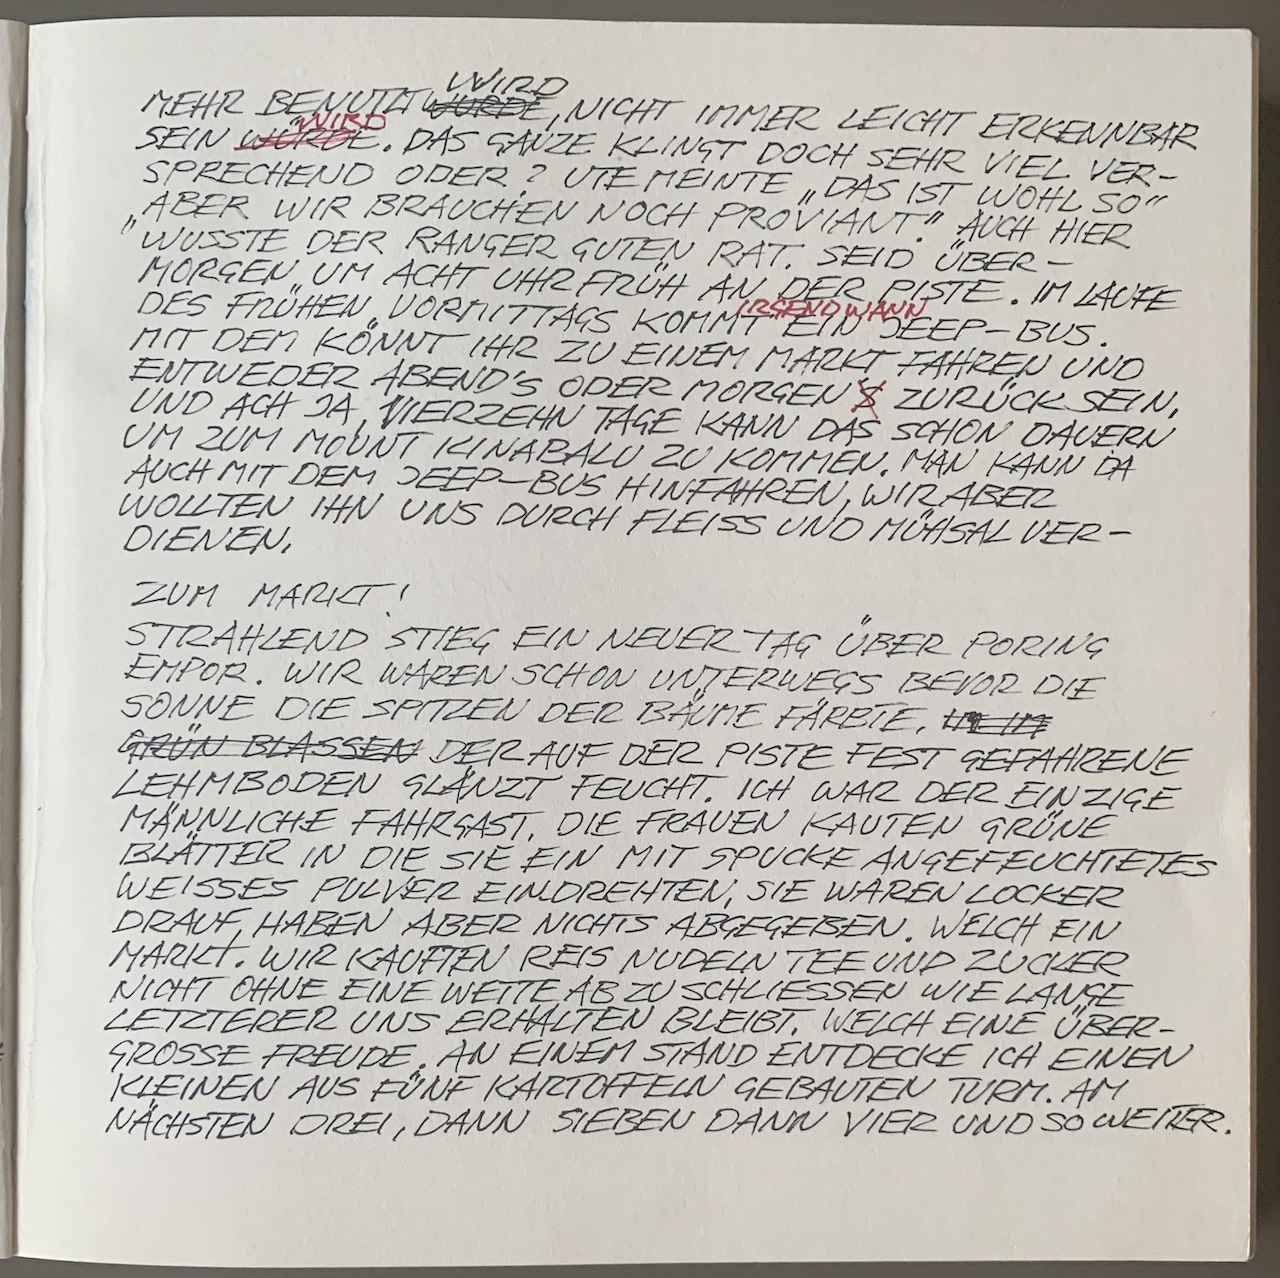 MEHR BENUTZT WURDE WIRD, NICHT IMMER LEICHT ERKENNBAR
SEIN WÜRDE WIRD. DAS GANZE KLINGT DOCH SEHR VIEL VER-
SPRECHEND ODER? UTE MEINTE „DAS IST WOHL SO"
„ABER WIR BRAUCHEN NOCH PROVIANT." AUCH HIER
WUSSTE DER RANGER GUTEN RAT. SEID ÜBER-
MORGEN UM ACHT UHR FRÜH AN DER PISTE. IM LAUFE
DES FRÜHEN VORMITTAGS KOMMT IRGENDWANN EIN JEEP-BUS.
MIT DEM KÖNNT IHR ZU EINEM MARKT FAHREN UND
ENTWEDER ABEND'S ODER MORGENS ZURÜCK SEIN.
UND ACH JA, VIERZEHN TAGE KANN DAS SCHON DAUERN
UM ZUM MOUNT KINABALU ZU KOMMEN. MAN KANN DA
AUCH MIT DEM JEEP-BUS HINFAHREN, WIR ABER
WOLLTEN IHN UNS DURCH FLEISS UND MÜHSAL VER-
DIENEN.
ZUM MARKT!
STRAHLEND STIEG EIN NEUER TAG ÜBER PORING
EMPOR. WIR WAREN SCHON UNTERWEGS BEVOR DIE
SONNE DIE SPITZEN DER BÄUME FÄRBTE.
GRÜN BLASSEN DER AUF DER PISTE FEST GEFAHRENE
LEHMBODEN GLÄNZT FEUCHT. ICH WAR DER EINZIGE
MÄNNLICHE FAHRGAST. DIE FRAUEN KAUTEN GRÜNE
BLÄTTER IN DIE SIE EIN MIT SPUCKE ANGEFEUCHTETES
WEISSES PULVER EINDREHTEN, SIE WAREN LOCKER
DRAUF, HABEN ABER NICHTS ABGEGEBEN. WELCH EIN
MARKT. WIR KAUFTEN REIS NUDELN TEE UND ZUCKER
NICHT OHNE EINE WETTE AB ZU SCHLIESSEN WIE LANGE
LETZTERER UNS ERHALTEN BLEIBT. WELCH EINE ÜBER-
GROSSE FREUDE. AN EINEM STAND ENTDECKE ICH EINEN
KLEINEN AUS FÜNF KARTOFFELN GEBAUTEN TURM. AM
NÄCHSTEN DREI, DANN SIEBEN DANN VIER UND SO WEITER.